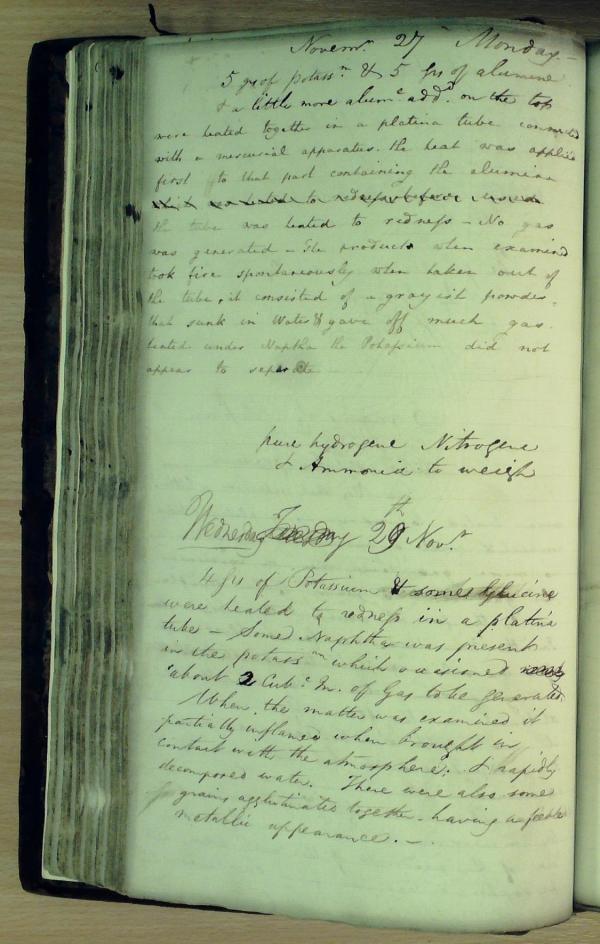 Novem.r 27 Monday -
5 grs of potass.m & 5 grs of alumine
& a little more alum.e add.d on the top
were heated together in a platina tube connected
with a mercurial apparatus. the heat was applied
first to that part containing the alumina
to redness
the tube was heated to redness - No gas
was generated - The products when examined
took fire spontaneously when taken out of
the tube, it consisted of a grayish powder,
that sunk in Water & gave off much gas.
heated under Naptha the Potassium did not
appear to separate
pure hydrogene Nitrogene
& Ammonia to weigh
Wednesday Tuesday 29th Nov.r
4 grs of Potassium & some Glucine
were heated to redness in a platina
tube - Some Naphtha was present
in the potass.m which occasioned
about 2 Cub.c In. of Gas to be generated.
When the matter was examined it
partially inflamed when brought in
contact with the atmosphere. & rapidly
decomposed water. There were also some
grains agglutinated together - having a feeble
metallic appearance. -